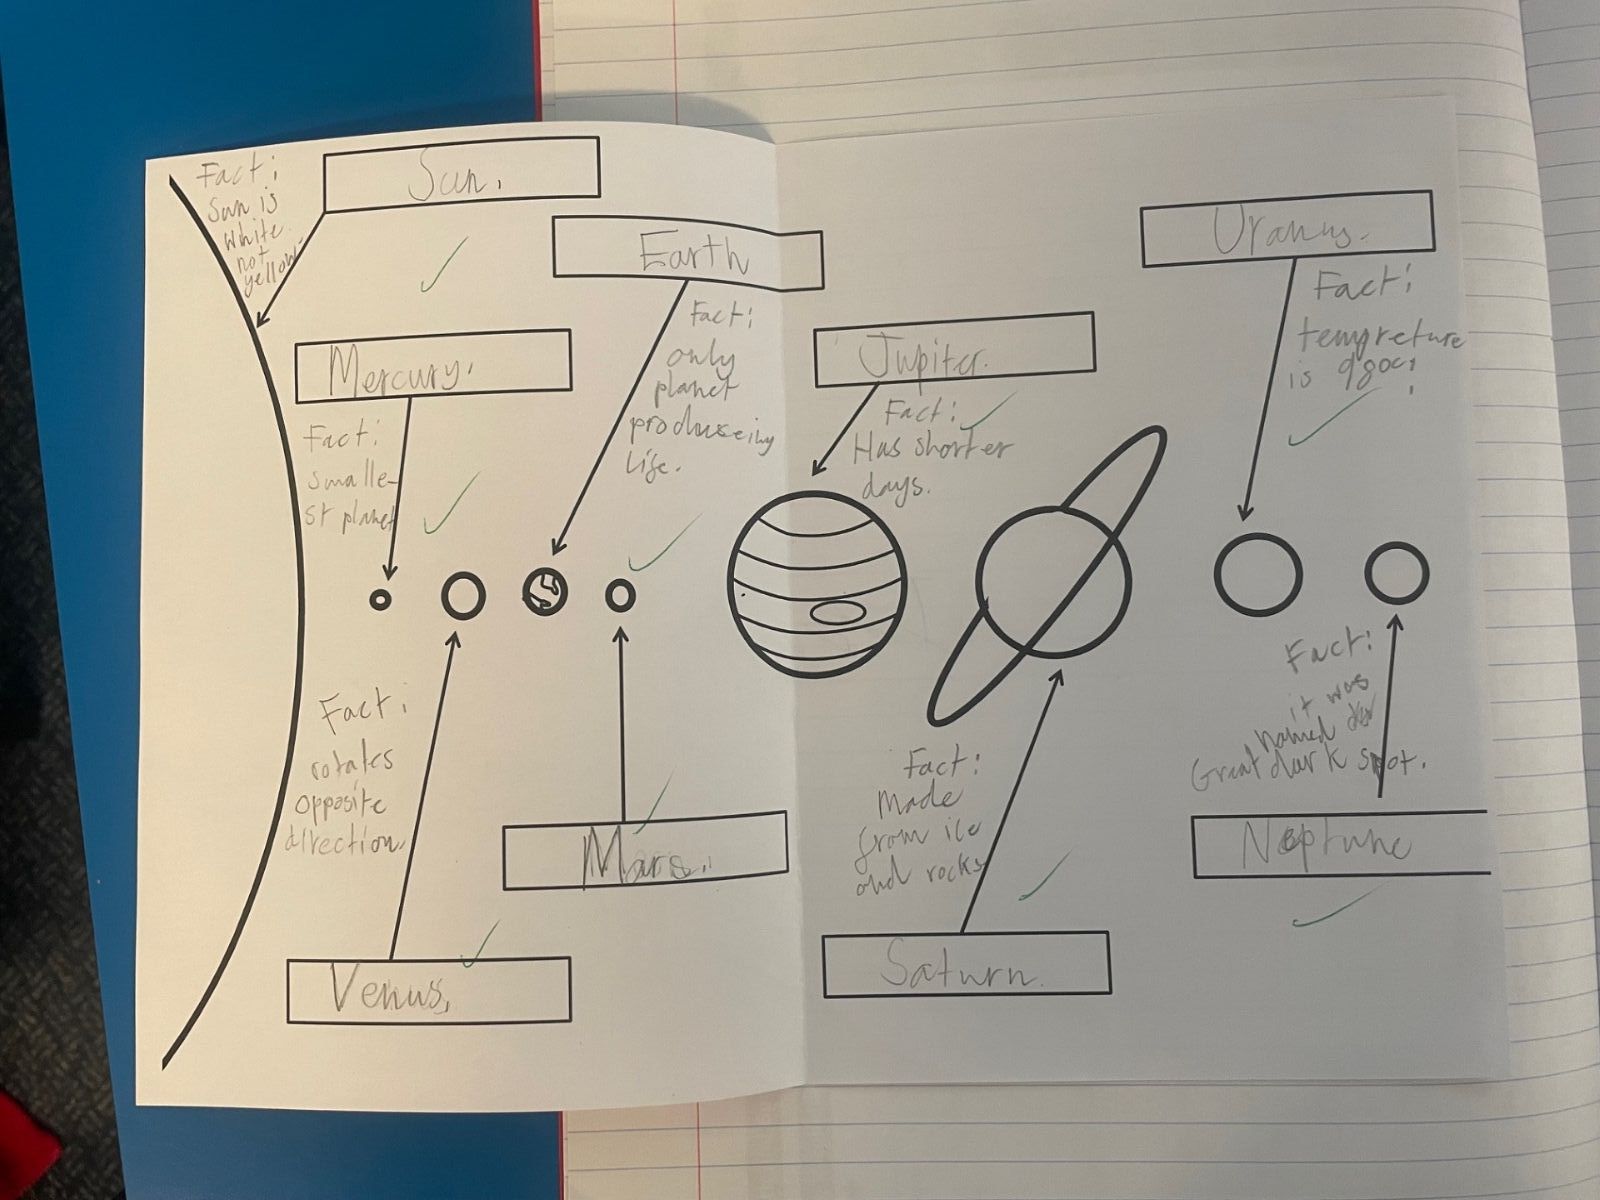 Fact:
Sun is
white
not
yellow.
Sun.
Earth
Fact:
only
planet
produseing
life.
Mercury.
Fact:
smalle-
st planet
Jupiter.
Fact:
Has shorter
days.
Uranus.
Fact:
tempreture
is
Fact:
rotates
opposite
direction.
Venus,
Mars.
Fact:
Made
from ice
and rocks
Saturn.
Fact:
it was
named
Great dark spot.
Neptune